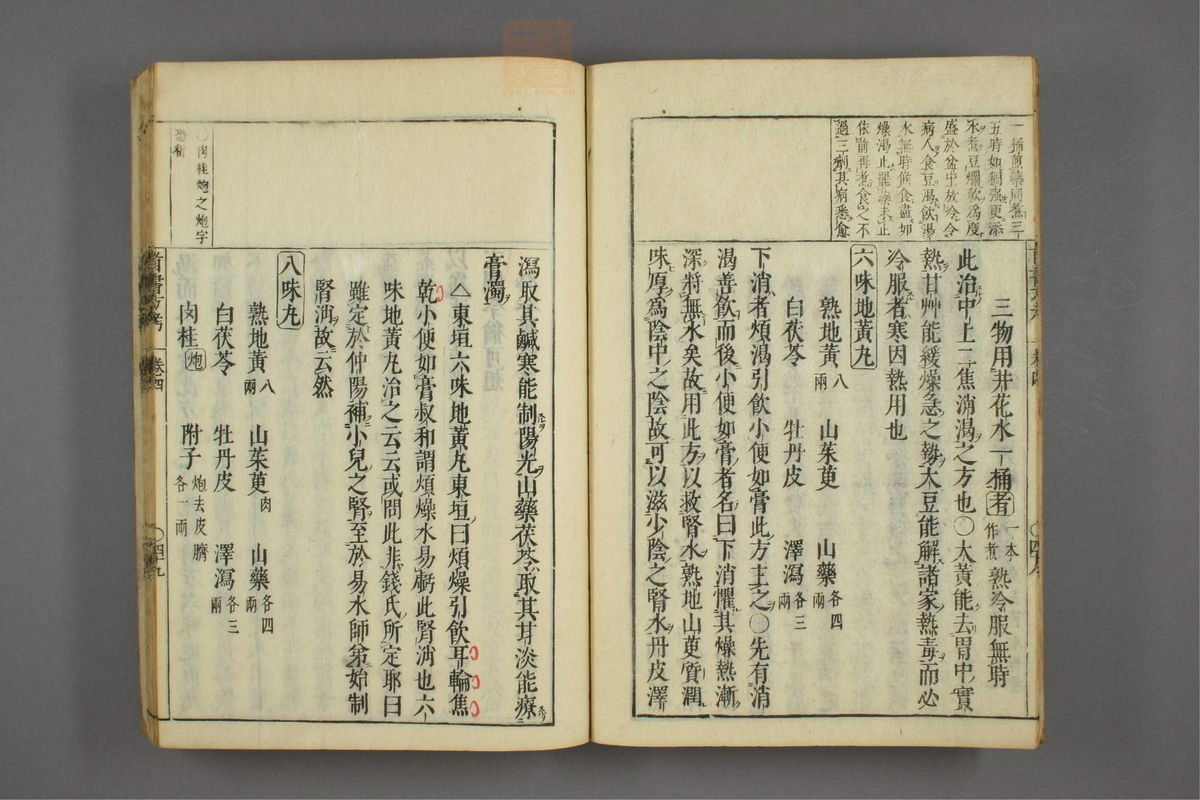 一桶煎藥同煮三
五時如稠強更添
水煮豆爛軟為度
盛於盆中放冷令
病人食豆渴飲湯
水無時候食盡如
燥渴止罷藥未止
依前再煮食之不
過三劑其病悉愈
三物用井花水一桶者一本作煮熟冷服無時
此治中上二焦消渴之方也〇大黃能去胃中實
熱甘艸能緩燥急之勢大豆能解諸家熱毒而必
冷服者寒因熱用也
六味地黃丸
熟地黃八兩 山茱萸 山藥各四兩
白茯苓 牡丹皮 澤瀉各三兩
下消者煩渴引飲小便如膏此方主之〇先有消
渴善飲而後小便如膏者名曰下消懼其燥熱漸
深將無水矣故用此方以救腎水熟地山萸質潤
味厚為陰中之陰故可以滋少陰之腎水丹皮澤
〇四八
瀉取其鹹寒能制陽光山藥茯苓取其甘淡能療
膏濁
△東垣六味地黃丸東垣曰煩燥引飲耳輪焦
乾小便如膏叔和謂煩燥水易虧此腎消也六
味地黃丸治之云云或問此非錢氏所定耶曰
雖定於仲陽補小兒之腎至於易水師弟始制
腎消故云然
八味丸
熟地黃八兩 山茱萸肉 山藥各四兩
白茯苓 牡丹皮 澤瀉各三兩
肉桂炮 附子炮去皮臍各一兩
〇肉桂炮之炮字
恐衍
卷四
〇四九